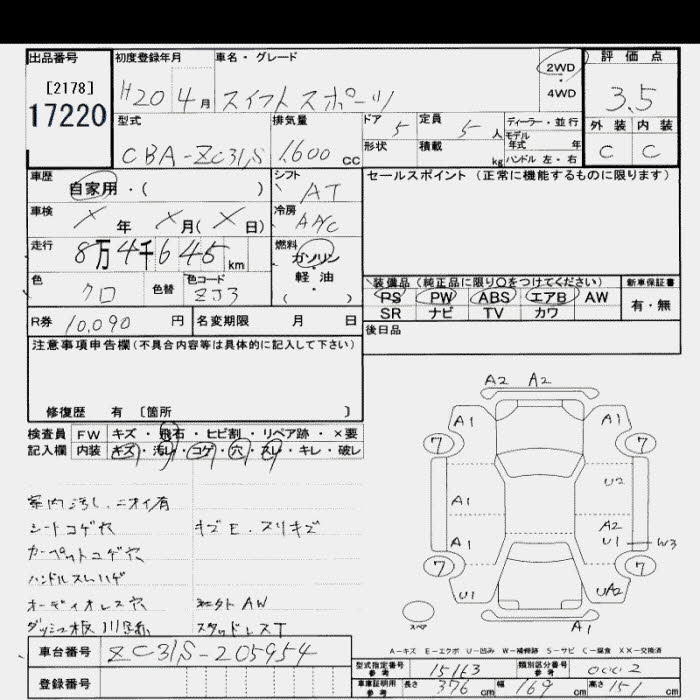 出品番号 初度登録年月 車名・グレード 評価点
[2178] 2WD
17220 H20 4月 スイフトスポーツ ・ 3.5
4WD
型式 排気量 ドア 5 定員 5人 ディーラー・並行 外装 内装
CBA-ZC31S 1,600 cc 形状 積載 kg モデル年式 年 C C
ハンドル 左・右
車歴 自家用・( ) シフト AT セールスポイント (正常に機能するものに限ります)
車検 × 年 × 月(× 日) 冷房 A/C
走行 8万4千645 km 燃料 ガソリン
軽・油
( )
色 クロ 色替 色コード ZJ3
装備品 (純正品に限り○をつけてください) 新車保証書
PS PW ABS エアB AW 有・無
SR ナビ TV カワ
R券 10,090 円 名変期限 月 日 後日品
注意事項申告欄 (不具合内容等は具体的に記入して下さい)
修復歴 有 〔箇所 〕
検査員 FW キズ・飛石・ヒビ割・リペア跡・×要
記入欄 内装 キズ・汚レ・コゲ・穴・スレ・キレ・破レ
室内汚レ.ニオイ有
シートコゲ穴 キズE.スリキズ
カーペットコゲ穴
ハンドルスレハゲ
オーディオレス穴 社外AW
スタッドレスT
A2 A2
A1 A1
7 7
U2
A1 A2
A1 U1 W3
7 7
U1 UA2
スペア A1
A-キズ E-エクボ U-凹み W-補修跡 S-サビ C-腐食 XX-交換済
車台番号 ZC31S-205954
登録番号
型式指定番号 参考 15163 類別区分番号 参考 0002
車庫証明用 参考 長さ 376 cm 幅 169 cm 高さ 151 cm